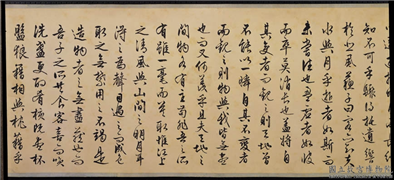 知不可乎驟得託遺響
於悲風蘇子曰客亦知夫
水與月乎逝者如斯而
未嘗往也盈虛者如彼
而卒莫消長也蓋將自
其變者而觀之則天地曾
不能以一瞬自其不變者
而觀之則物與我皆無盡
也而又何羨乎且夫天地之
間物各有主苟非吾之所
有雖一毫而莫取惟江上
之清風與山間之明月耳
得之而為聲目遇之而成色
取之無禁用之不竭是
造物者之無盡藏也而
吾與子之所共食客喜而笑
洗盞更酌肴核既盡杯
盤狼藉相與枕藉乎
國立故宮博物院